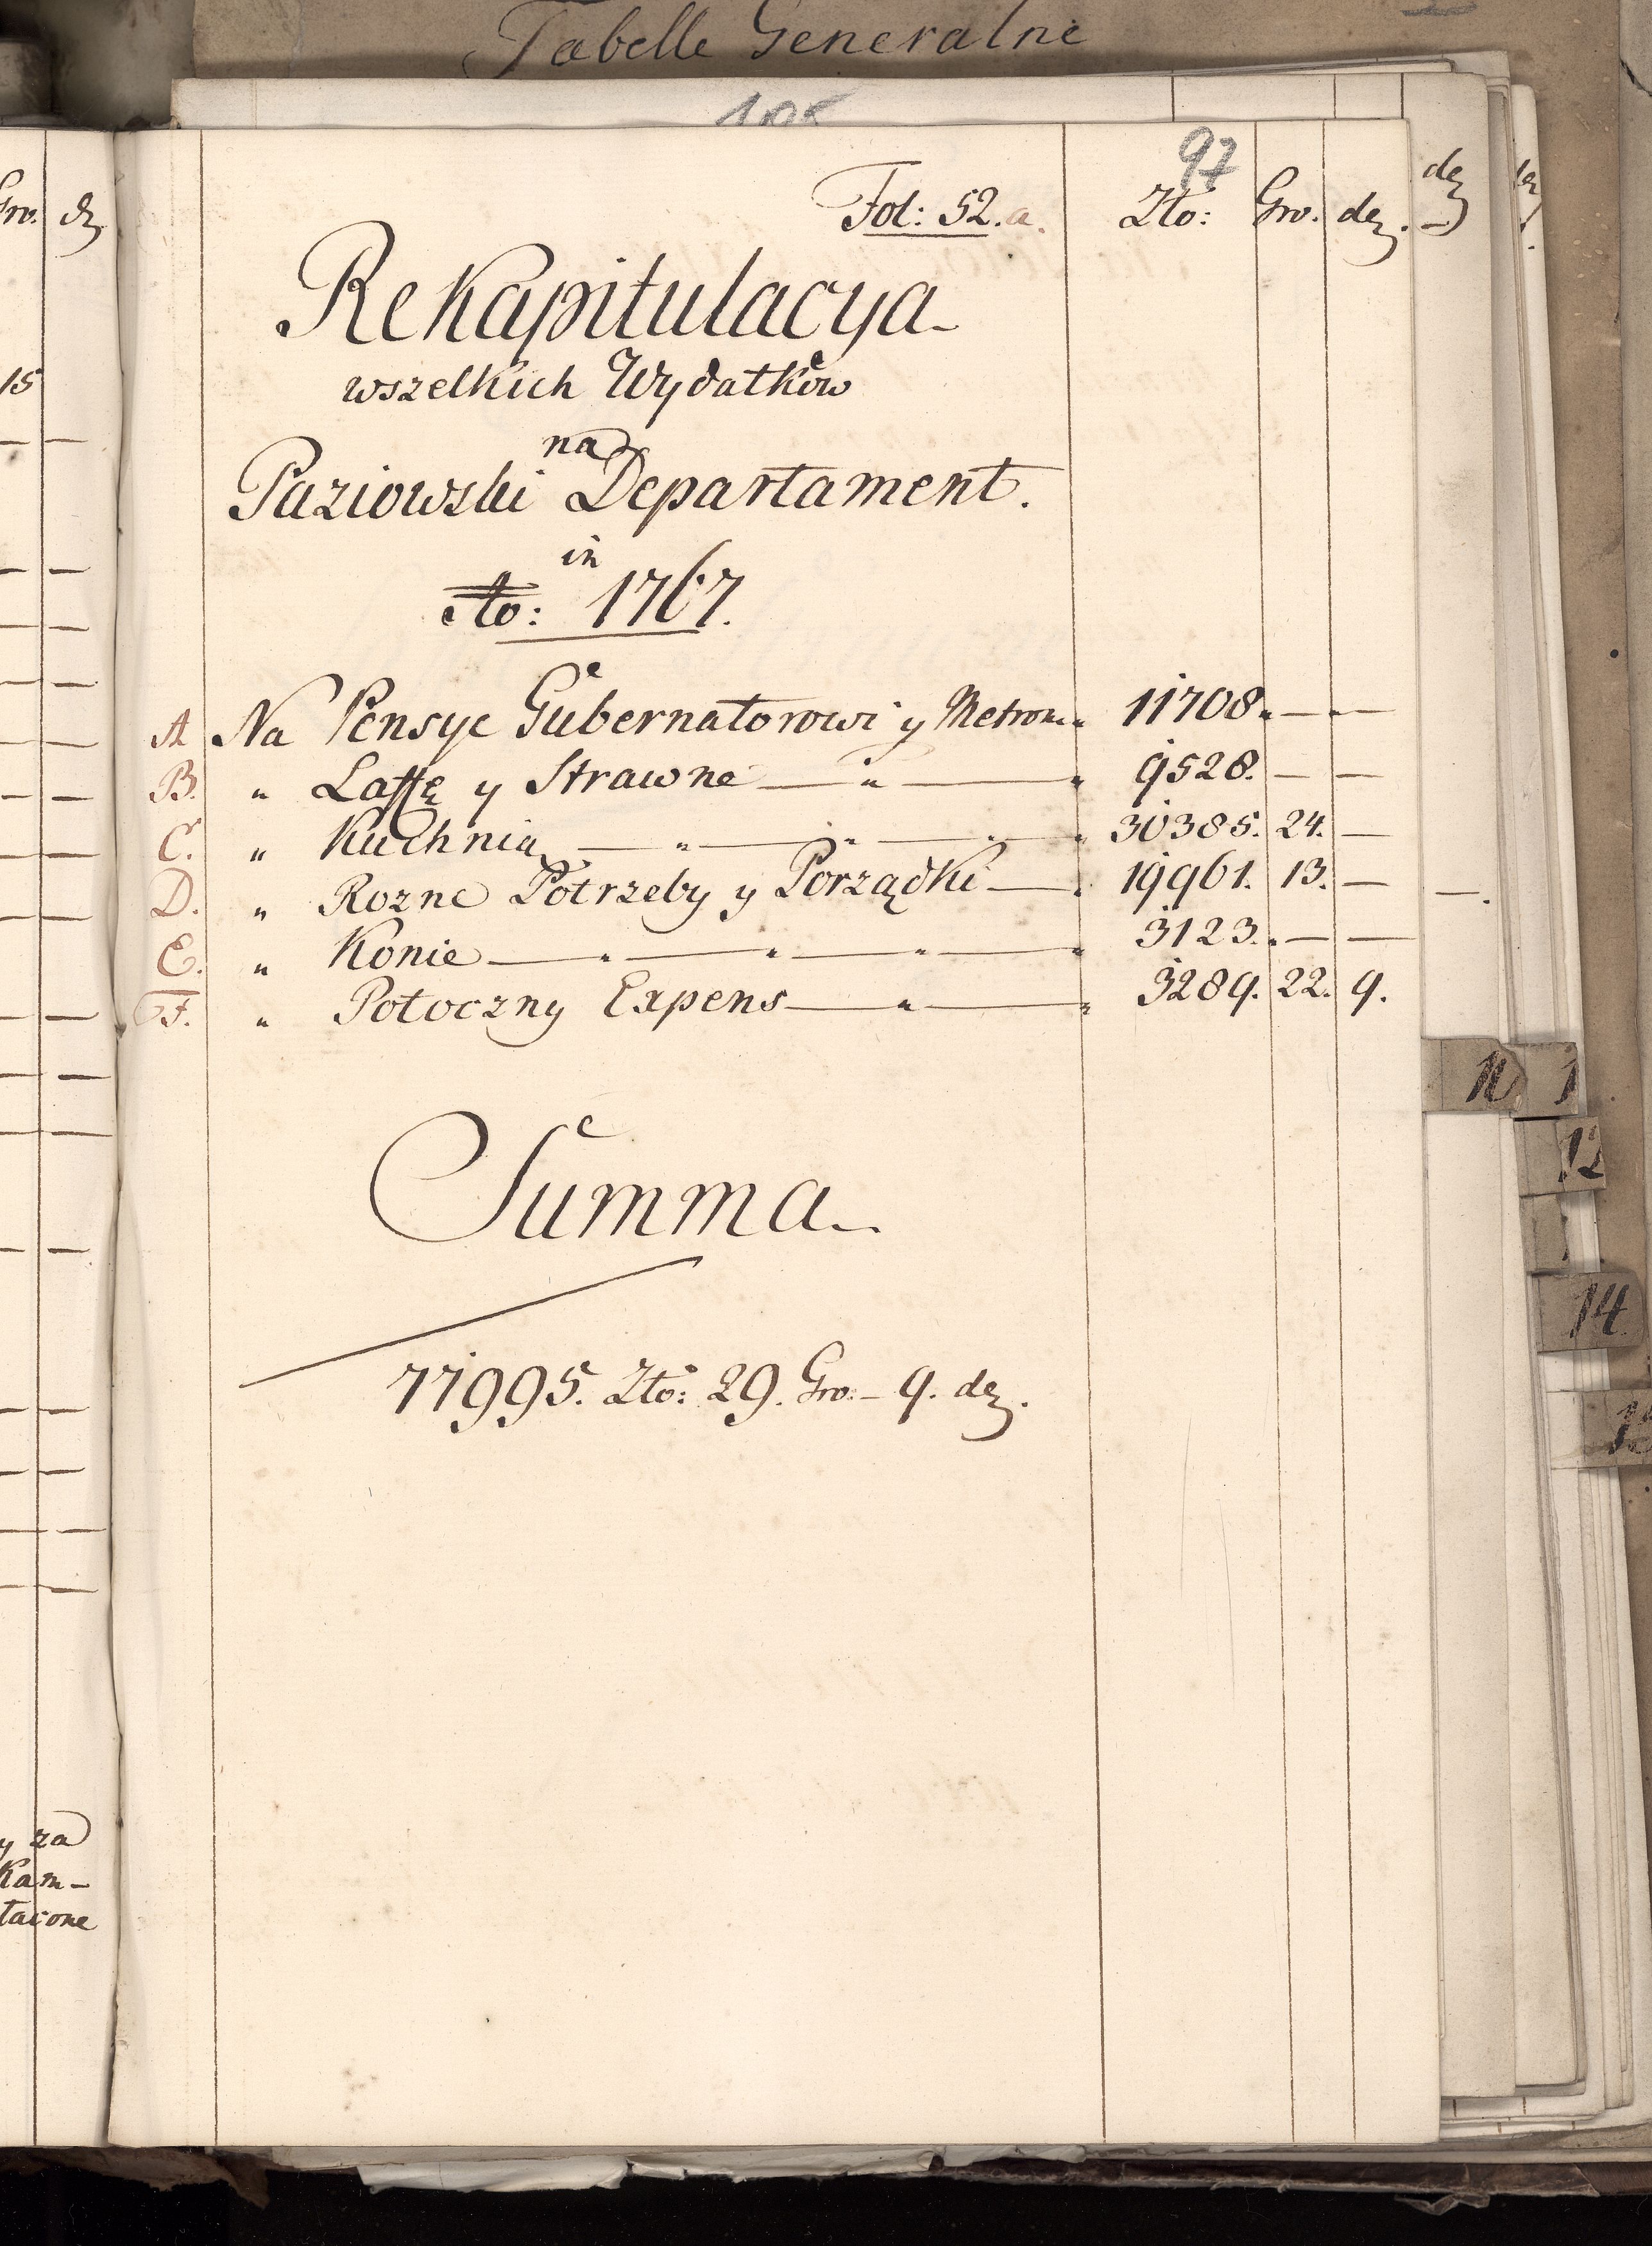 Tabelle Generalne
97
Fol: 52.a. Zło: Gro. den.
Rekapitulacya
wszelkich Wydatków
na
Paziowski Departament.
in
Ao: 1767.
A Na Pensye Gubernatorowi y Metrom 11708. — —
B. " Laffę y Strawne — " — 9528. — —
C. " Kuchnią — " — " — 30385. 24. —
D. " Rozne Potrzeby y Porządki — 19961. 13. —
E. " Konie — " — " — " — 3123. — —
F. " Potoczny Expens — " — 3289. 22. 9.
Summa
77995. Zło: 29. Gro. - 9. den.
Gro.
15
y za
Kam-
tacone
12
14